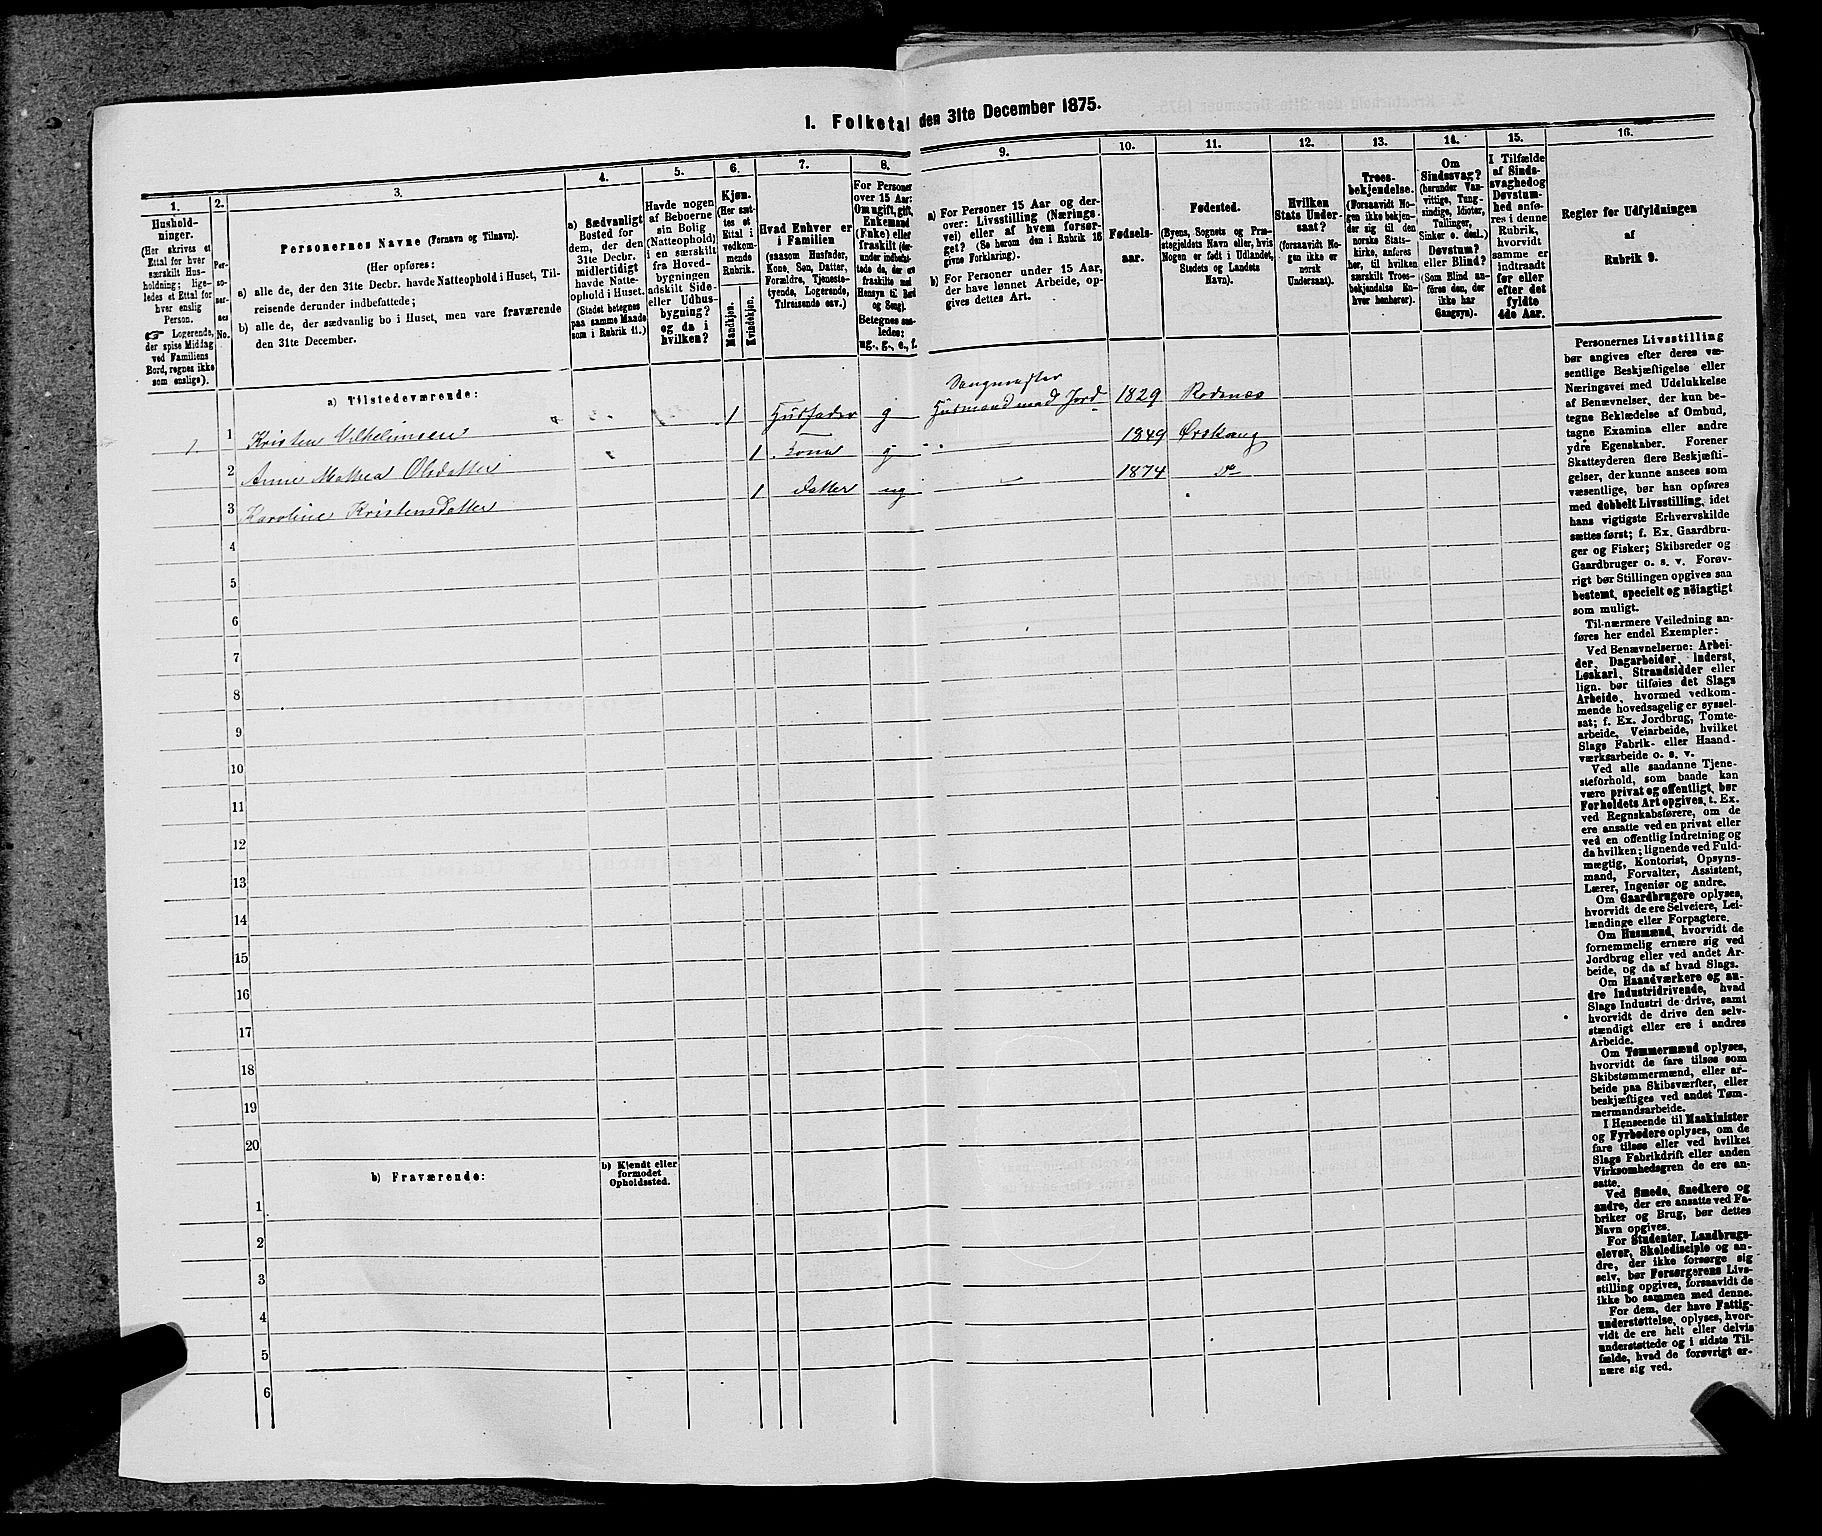 1. Folketal den 31te December 1875.
1.
2.
3.
4.
5.
6.
7.
8.
9.
10.
11.
12.
13.
14.
15.
16.
Hushold-
ninger.
(Her skrives et
Ettal for hver
særskilt Hus-
holdning; lige-
ledes et Ettal for
hver enslig
Person.
☞ Logerende,
der spise Middag
ved Familiens
Bord, regnes ikke
som enslige).
Per-
so-
ner-
nes
No.
Personernes Navne (Fornavn og Tilnavn).
(Her opføres:
a) alle de, der den 31te Decbr. havde Natteophold i Huset, Til-
reisende derunder indbefattede;
b) alle de, der sædvanlig bo i Huset, men vare fraværende
den 31te December.
a) Sædvanligt
Bosted for
dem, der den
31te Decbr.
midlertidigt
havde Natte-
ophold i Huset.
(Stedet betegnes
paa samme Maade
som i Rubrik 11.)
Havde nogen
af Beboerne
sin Bolig
(Natteophold)
i en særskilt
fra Hoved-
bygningen
adskilt Side-
eller Udhus-
bygning?
og da i
hvilken?
Kjøn.
(Her sæt-
tes et
Ettal i
vedkom-
mende
Rubrik.
Mandkjøn.
Kvindekjøn.
Hvad Enhver er
i Familien
(saasom Husfader,
Kone, Søn, Datter,
Forældre, Tjeneste-
tyende, Logerende,
Tilreisende osv.)
For Personer
over 15 Aar:
Om ugift, gift,
Enkemand
(Enke) eller
fraskilt (der-
under indbefat-
tede de, der ere
fraskilte med
Hensyn til Bord
og Seng).
Betegnes saa-
ledes:
ug., g., e., f.
a) For Personer 15 Aar og der-
over: Livsstilling (Nærings-
vei) eller af hvem forsør-
get? (Se herom den i Rubrik 16
givne Forklaring).
b) For Personer under 15 Aar,
der have lønnet Arbeide, op-
gives dettes Art.
Fødsels-
aar.
Fødested.
(Byens, Sognets og Præ-
stegjeldets Navn eller, hvis
Nogen er født i Udlandet,
Stedets og Landets
Navn).
Hvilken
Stats Under-
saat?
(forsaavidt No-
gen ikke er
norsk
Undersaat).
Troes-
bekjendelse.
(Forsaavidt No-
gen ikke bekjen-
der sig til den
norske Stats-
kirke, anføres
her, til hvilken
særskilt Troes-
bekjendelse En-
hver henhører).
Om
Sindssvag?
(herunder Van-
vittige, Tung-
sindige, Idioter,
Tullinger,
Sinker o. desl.)
Døvstum?
eller Blind?
(Som Blind an-
føres den, der
ikke har
Gangsyn).
I Tilfælde
af Sinds-
svaghed og
Døvstum-
hed anfø-
res i denne
Rubrik,
hvorvidt
samme er
indtraadt
før eller
efter det
fyldte
4de Aar.
Regler for Udfyldningen
af
Rubrik 9.
a) Tilstedeværende:
1 1 Kristen Vilhelmsen 1 Husfader g Husmand med Jord 1829 Rødenes
2 Anne Mathea Olsdatter 1 Kone g 1849 Ørskoug
3 Karoline Kristensdatter 1 datter ug 1874 do
4
5
6
7
8
9
10
11
12
13
14
15
16
17
18
19
20
b) Fraværende:
b) Kjendt eller
formodet
Opholdssted.
1
2
3
4
5
6
Personernes Livsstilling
bør angives efter deres væ-
sentlige Beskjæftigelse eller
Næringsvei med Udelukkelse
af Benævnelser, der kun be-
tegne Beklædelse af Ombud,
tagne Examina eller andre
ydre Egenskaber. Forener
Skatteyderen flere Beskjæfti-
gelser, der kunne ansees som
væsentlige, bør han opføres
med dobbelt Livsstilling, idet
hans vigtigste Erhvervskilde
sættes først; f. Ex. Gaardbru-
ger og Fisker; Skibsreder og
Gaardbruger o. s. v. Forøv-
rigt bør Stillingen opgives saa
bestemt, specielt og nøiagtigt
som muligt.
Til nærmere Veiledning an-
føres her endel Exempler:
Ved Benævnelserne: Arbei-
der, Dagarbeider, Inderst,
Løskarl, Strandsidder eller
lign. bør tilføies det Slags
Arbeide, hvormed vedkom-
mende hovedsagelig er syssel-
sat; f. Ex. Jordbrug, Tomte-
arbeide, Veiarbeide, hvilket
Slags Fabrik- eller Haand-
værksarbeide o. s. v.
Ved alle saadanne Tjene-
steforhold, som baade kan
være privat og offentligt, bør
Forholdets Art opgives, t. Ex.
ved Regnskabsførere, om de
ere ansatte ved en privat eller
ved en offentlig Indretning og
da hvilken; lignende ved Fuld-
mægtig, Kontorist, Opsyns-
mand, Forvalter, Assistent,
Lærer, Ingeniør og andre.
Om Gaardbrugere oplyses,
hvorvidt de ere Selveiere, Lei-
lændinge eller Forpagtere.
Om Husmænd, hvorvidt de
fornemmelig ernære sig ved
Jordbrug eller ved andet Ar-
beide, og da af hvad Slags.
Om Haandværkere og an-
dre Industridrivende, hvad
Slags Industri de drive, samt
hvorvidt de drive den selv-
stændigt eller ere i andres
Arbeide.
Om Tømmermænd oplyses,
hvorvidt de fare tilsøs som
Skibstømmermænd, eller ar-
beide paa Skibsværfter, eller
beskjæftiges ved andet Tøm-
mermandsarbeide.
I Henseende til Maskinister
og Fyrbødere oplyses, om de
fare tilsøs eller ved hvilket
Slags Fabrikdrift eller anden
Virksomhedsgren de ere an-
satte.
Ved Smede, Snedkere og
andre, der ere ansatte ved Fa-
briker og Brug, bør dettes
Navn opgives.
For Studenter, Landbrugs-
elever, Skoledisciple og an-
dre, der ikke forsørge sig
selv, bør Forsørgerens Livs-
stilling opgives, forsaavidt de
ikke bo sammen med denne.
For dem, der have Fattig-
understøttelse, oplyses, hvor-
vidt de ere helt eller delvis
understøttede og i sidste Til-
fælde, hvad de forøvrigt er-
nære sig ved.